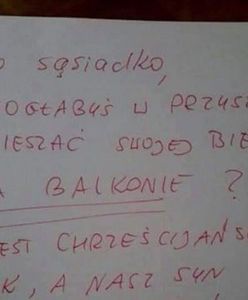 O SĄSIADKO,
OGŁABYŚ W PRZYSZ
IESZAĆ SWOJEJ BIE
A BALKONIE?
EST CHRZEŚCIJAŃS
K, A NASZ SYN,